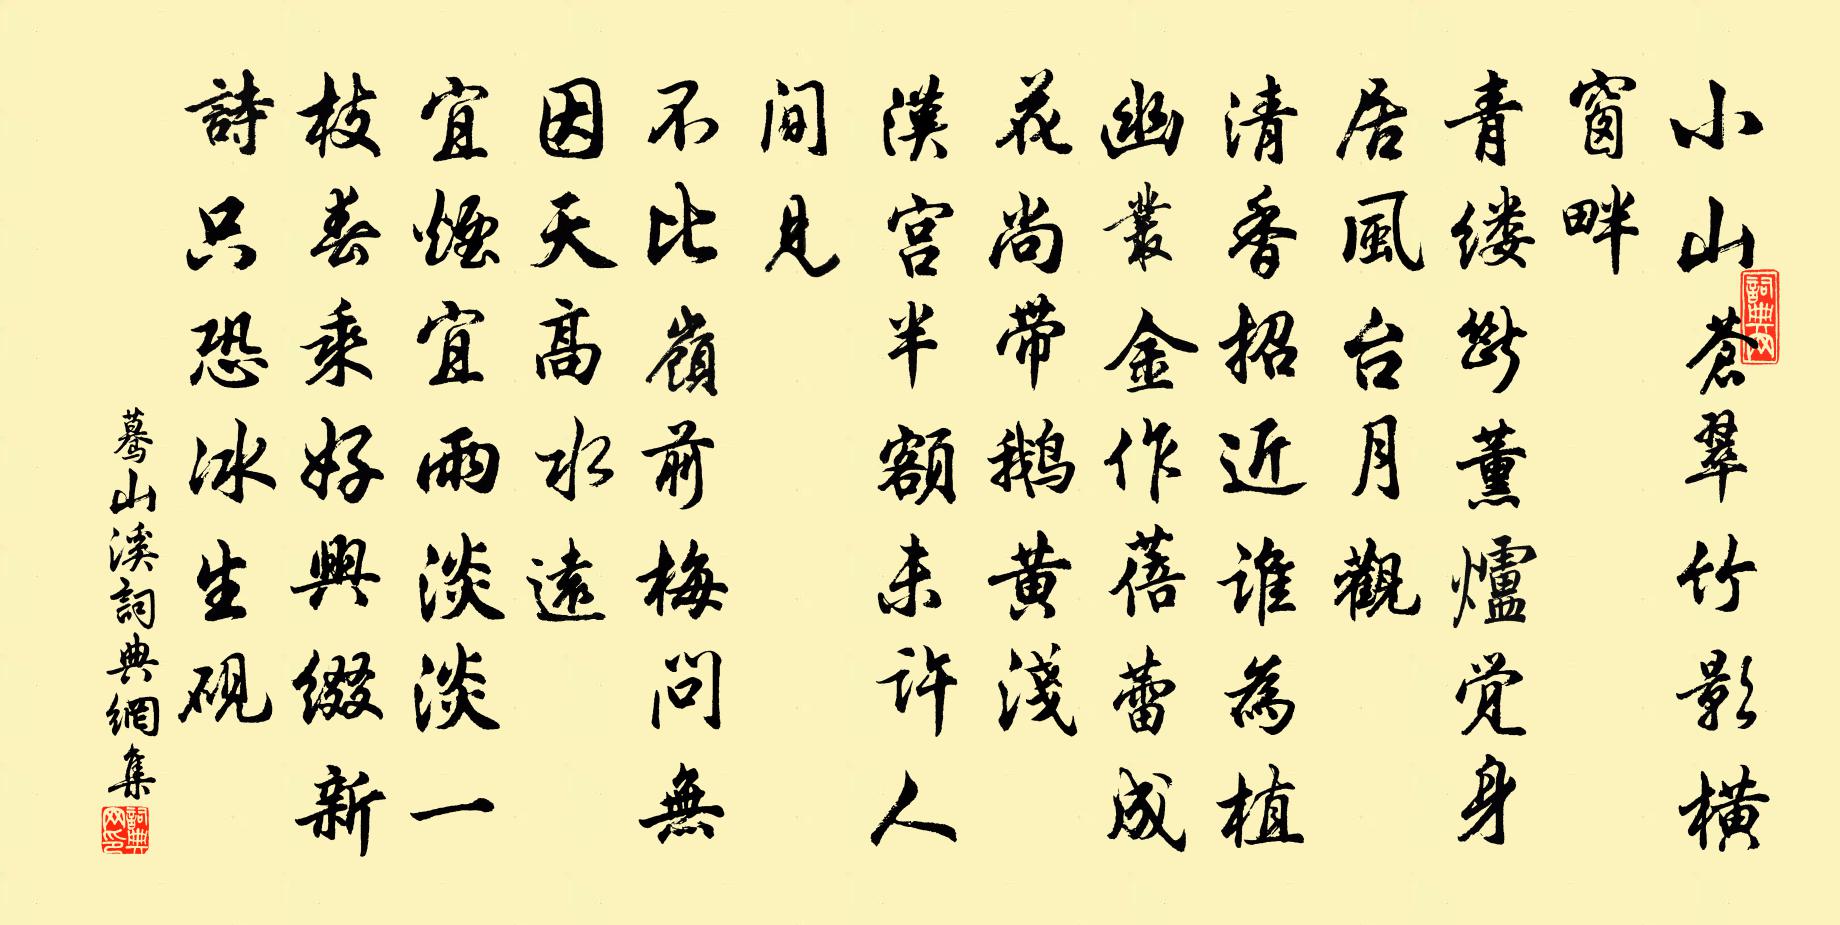 小山蒼翠竹影橫
窗畔
青缕斷薰爐觉身
居風台月觀
清香招近谁為植
幽叢金作蓓蕾成
花尚带鹅黄淺
漢宫半額未许人
间見
不比嶺前梅問無
因天高水遠
宜煙宜雨淡淡一
枝春乘好興綴新
詩只恐冰生砚
驀山溪詞典網集